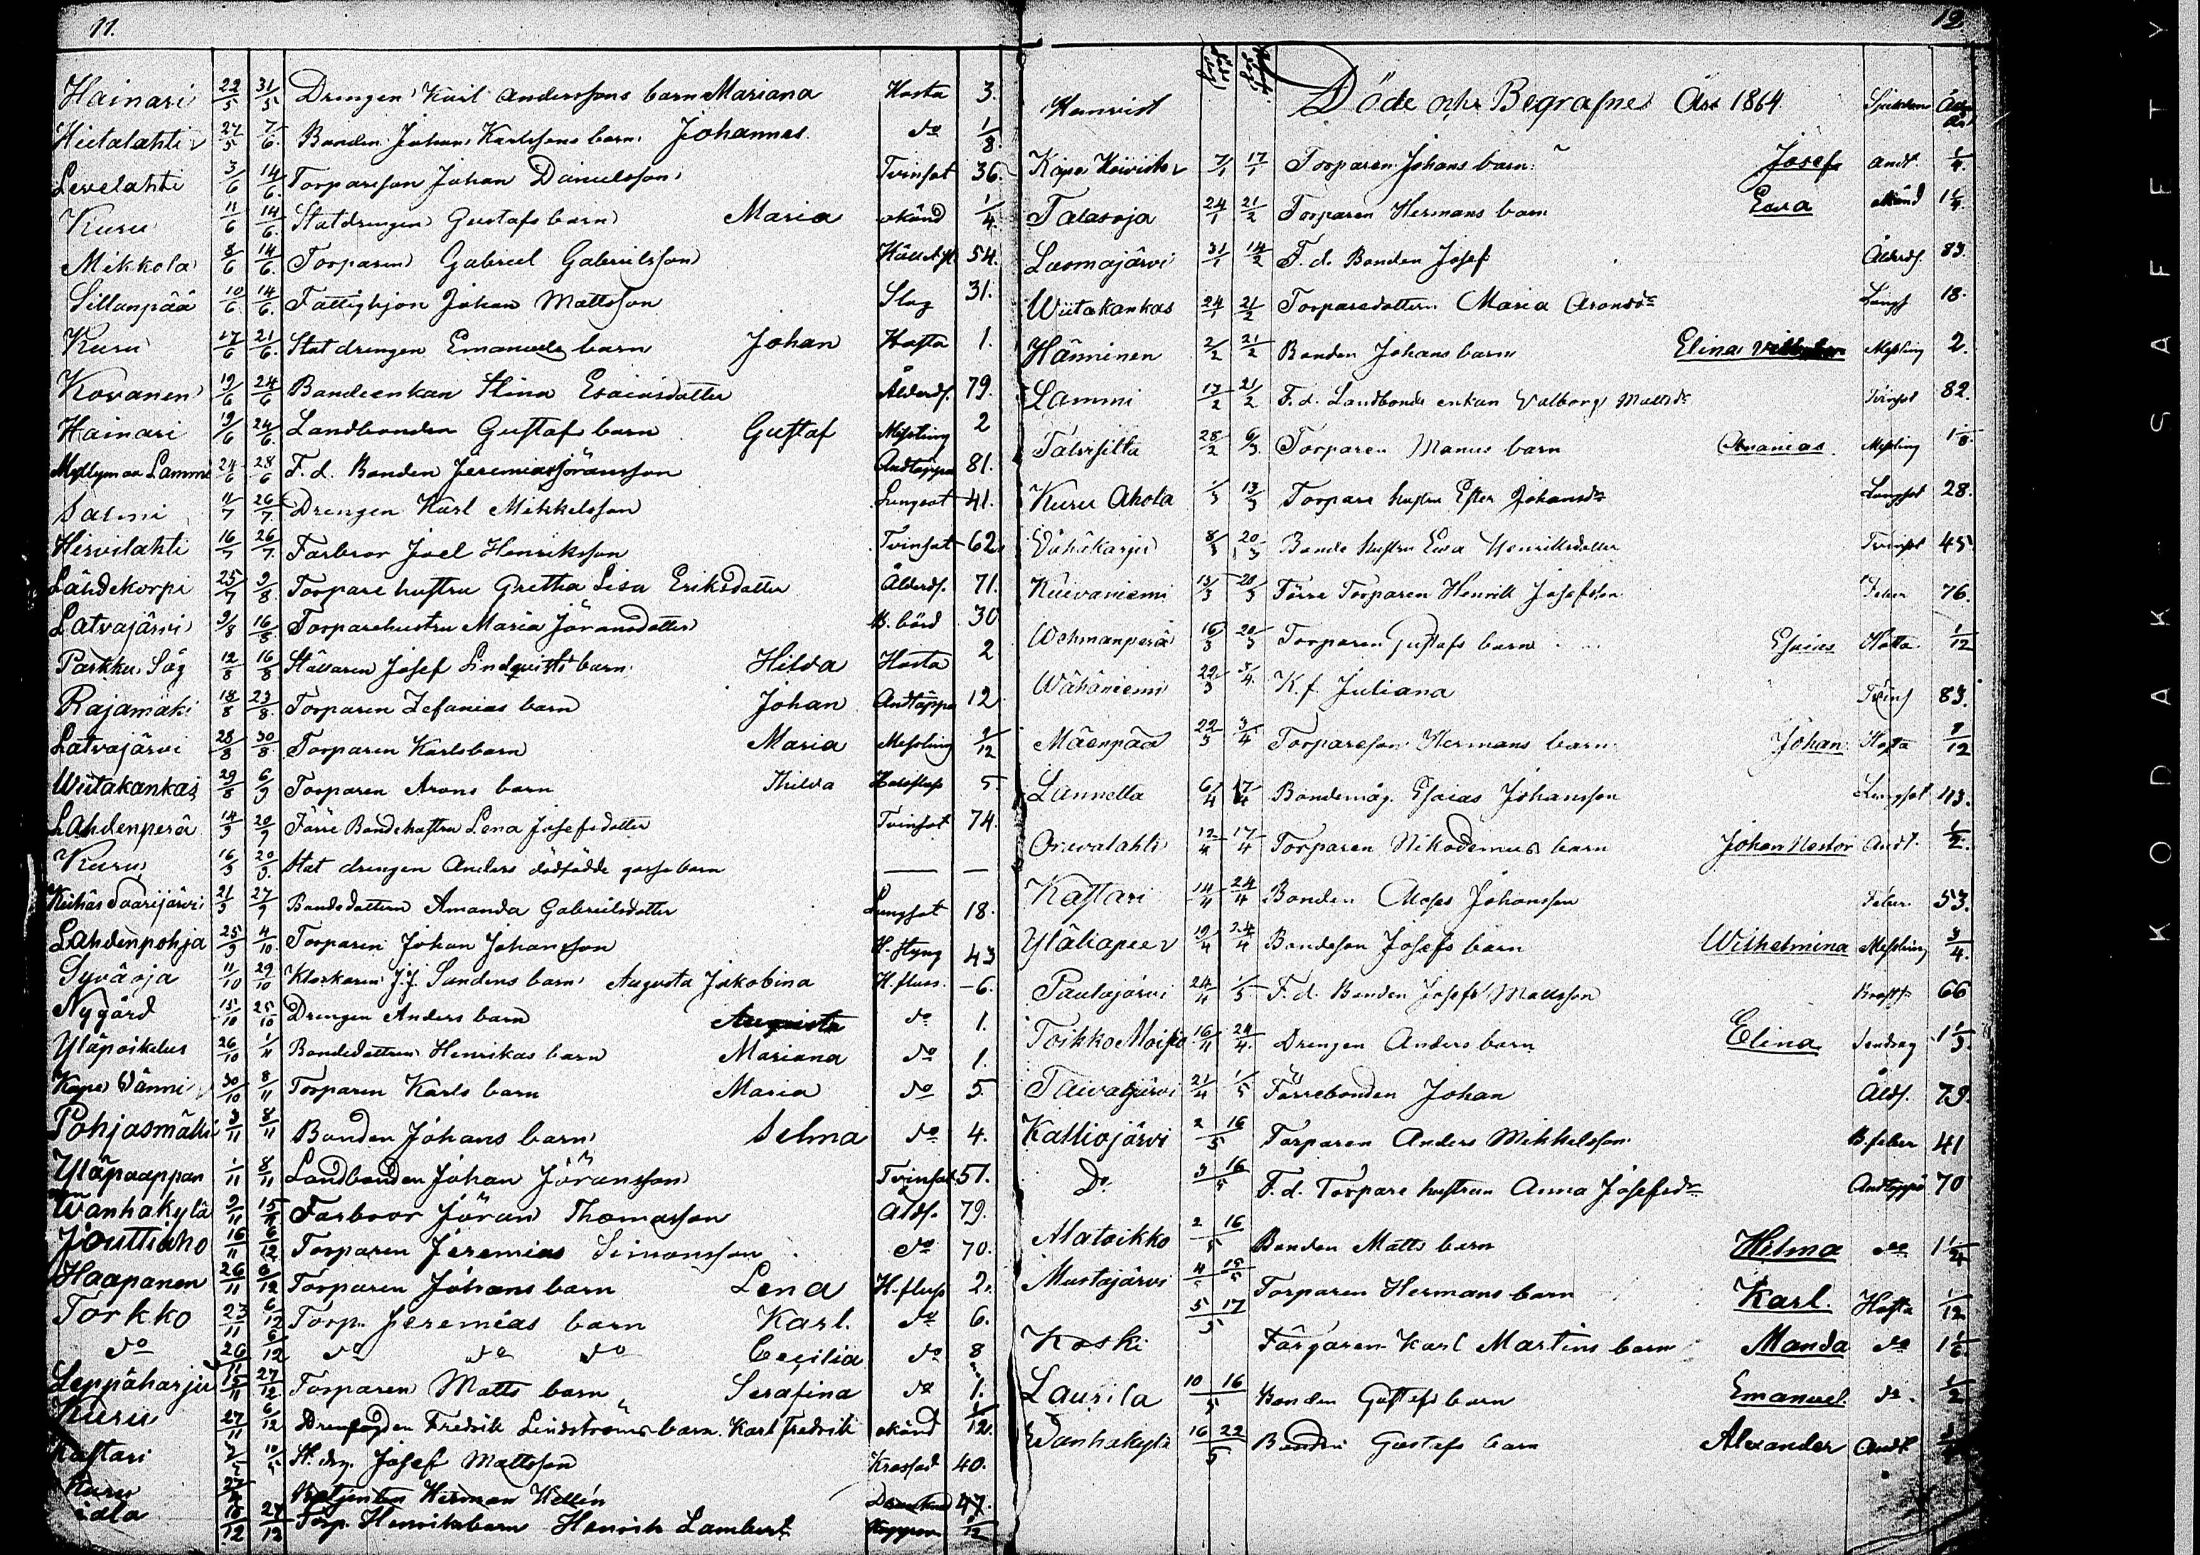 11.
Hainari 22/5 31/5 Drengen Karl Anderssons barn Mariana Hosta 3.
Hietalahti 27/5 7/6. Bonden Johans Karlssons barn Johannes do 1/8.
Levelahti 3/6 14/6. Torpareson Johan Danielsson Tvinsot 36.
Kuru 11/6 14/6. Statdrengen Gustafs barn Maria okänd 1/4.
Mikkola 8/6 14/6. Torparen Gabriel Gabrielsson 54.
Sillanpää 10/6 14/6. Fattighjon Johan Mattsson Slag 31.
Kuru 17/6 21/6. Statdrengen Emanuels barn Johan Hosta 1.
Kovanen 19/6 24/6 Bondeenkan Stina Esaiasdotter Ålderds. 79.
Hainari 19/6 24/6. Landbonden Gustafs barn Gustaf Messling 2
Myllymaa Lammi 24/6 28/6 F. d. Bonden Jeremias Jöransson Andtäppa 81.
Salmi 11/7 26/7. Drengen Karl Mikkelsson Lungsot 41.
Hirvilahti 16/7 26/7. Farbror Joel Henriksson Tvinsot 62.
Lähdekorpi 25/7 9/8 Torpare hustru Gretha Lisa Eriksdotter Ålderds. 71.
Latvajärvi 9/8 16/8 Torparehustru Maria Jöransdotter B. börd 30
Parkku Såg 12/8 16/8 Ställaren Josef Lindqvists barn Hilda Hosta 2
Rajamäki 18/8 23/8. Torparen Zefanias barn Johan Andtäppa 12
Latvajärvi 28/8 30/8 Torparen Karls barn Maria Messling 1/12
Wiitakankas 29/8 6/9 Torparen Arons barn Thilda Halsfluss 5
Lähdenperä 14/9 20/9 Förre Bondehustru Lena Josefsdotter Tvinsot 74.
Kuru 16/9 20/9. Stat drengen Anders dödfödde gosse barn — —
Keihäs Saarijärvi 21/9 27/9 Bondedottern Amanda Gabrielsdotter Lungsot 18.
Lahdenpohja 25/9 4/10. Torparen Johan Johansson H. styng 43
Syväoja 11/10 29/10 Klockaren J. J. Sundens barn Augusta Jakobina H. fluss. 6.
Nygård 15/10 25/10 Drengen Anders barn Augusta do 1.
Yläpoikelus 26/10 1/11 Bondedottren Henrikas barn Mariana do 1.
Kapee Vänni 30/10 8/11 Torparen Karls barn Maria do 5.
Pohjasmälli 3/11 8/11 Bonden Johans barn Selma do 4.
Yläpaappanen 1/11 8/11 Landbonden Johan Jöransson Tvinsot 51.
Wanhakylä 9/11 15/11 Farbror Jöran Thomasson Ålds. 79.
Jouttiaho 16/11 6/12 Torparen Jeremias Simonsson do 70.
Haapanen 26/11 6/12 Torparen Johans barn Lena H. fluss 2.
Torkko 23/11 6/12 Torp. Jeremias barn Karl. do 6.
do 26/11 6/12 do do do Cecilia do 8
Leppäharju 15/11 27/12 Torparen Matts barn Serafina do 1.
Kuru 27/11 6/12 Fredrik Lindströms barn Karl Fredrik okänd 1/12.
Kastari 10/5 St. drg. Josef Mattsson 40.
Kuru Herman Wellén 47.
27/12 Torp. Henriks barn Henrik Lambert 1/12
12.
Hemvist Döde och Begrafne År 1864. Sjukdom
Kapee Koivisto 7/1 17/1 Torparen Johans barn Josef Andt. 1/4.
Talasoja 24/1 21/2 Torparen Hermans barn Ewa okänd 1 1/4.
Luomajärvi 31/1 14/2 F. d. Bonden Josef Ålderds. 83.
Wiitakankas 24/1 21/2 Torparedottern Maria Aronsdr Lungs 18.
Hänninen 2/2 21/2 Bonden Johans barn Elina Messling 2.
Lammi 17/2 21/2 F. d. Landbonde enkan Valborg Mattsdr Tvinsot 82.
28/2 6/3. Torparen Manus barn Ananias Messling 1 1/8.
Kuru Ahola 1/3 13/3 Torpare hustru Ester Johansdr Lungsot 28.
Vähäkarju 8/3 20/3 Bonde hustru Ewa Henriksdotter Tvinsot 45.
Kuivaniemi 13/3 20/3 Förre Torparen Henrik Josefsson Feber 76.
Wehmanperä 16/3 20/3 Torparen Gustafs barn Esaias Hosta 1/12
Wähäniemi 22/3 3/4. K. f. Juliana Tvins 83.
Mäenpää 22/3 3/4 Torpareson Hermans barn Johan Hosta 9/12
Lannetta 6/4 17/4 Bondemåg Esaias Johansson Lungsot 43.
Orivalahti 12/4 17/4 Torparen Nikodemus barn Johan Nestor Andt. 1/2.
Kastari 14/4 24/4 Bonden Moses Johansson Feber 53.
Yläliapee 19/4 24/4 Bondeson Josefs barn Wilhelmina Messling 3/4.
Paulajärvi 24/4 1/5 F. d. Bonden Josef Mattsson 66
Toikko Moisio 16/4 24/4. Drengen Anders barn Elina 1 1/3.
Taivaljärvi 21/4 1/5 Förrebonden Johan Ålds. 79.
Kalliojärvi 2 16/5 Torparen Anders Mikkelsson B. feber 41
Do 3 16/5 F. d. Torpare hustrun Anna Josefsdr Andtäppa 70
Matoikko 2 16/5 Bonden Matts barn Hilma do 1 1/4
Mustajärvi 4 15/5 Torparen Hermans barn Karl. Hosta 1/12
Koski 5 17/5 Färgaren Karl Martins barn Manda do 1 1/6.
Laurila 10 16/5 Bonden Gustafs barn Emanuel. do. 1/2
Wanhakylä 16 22/5 Bonden Gustafs barn Alexander Andt.
KODAK SAFETY